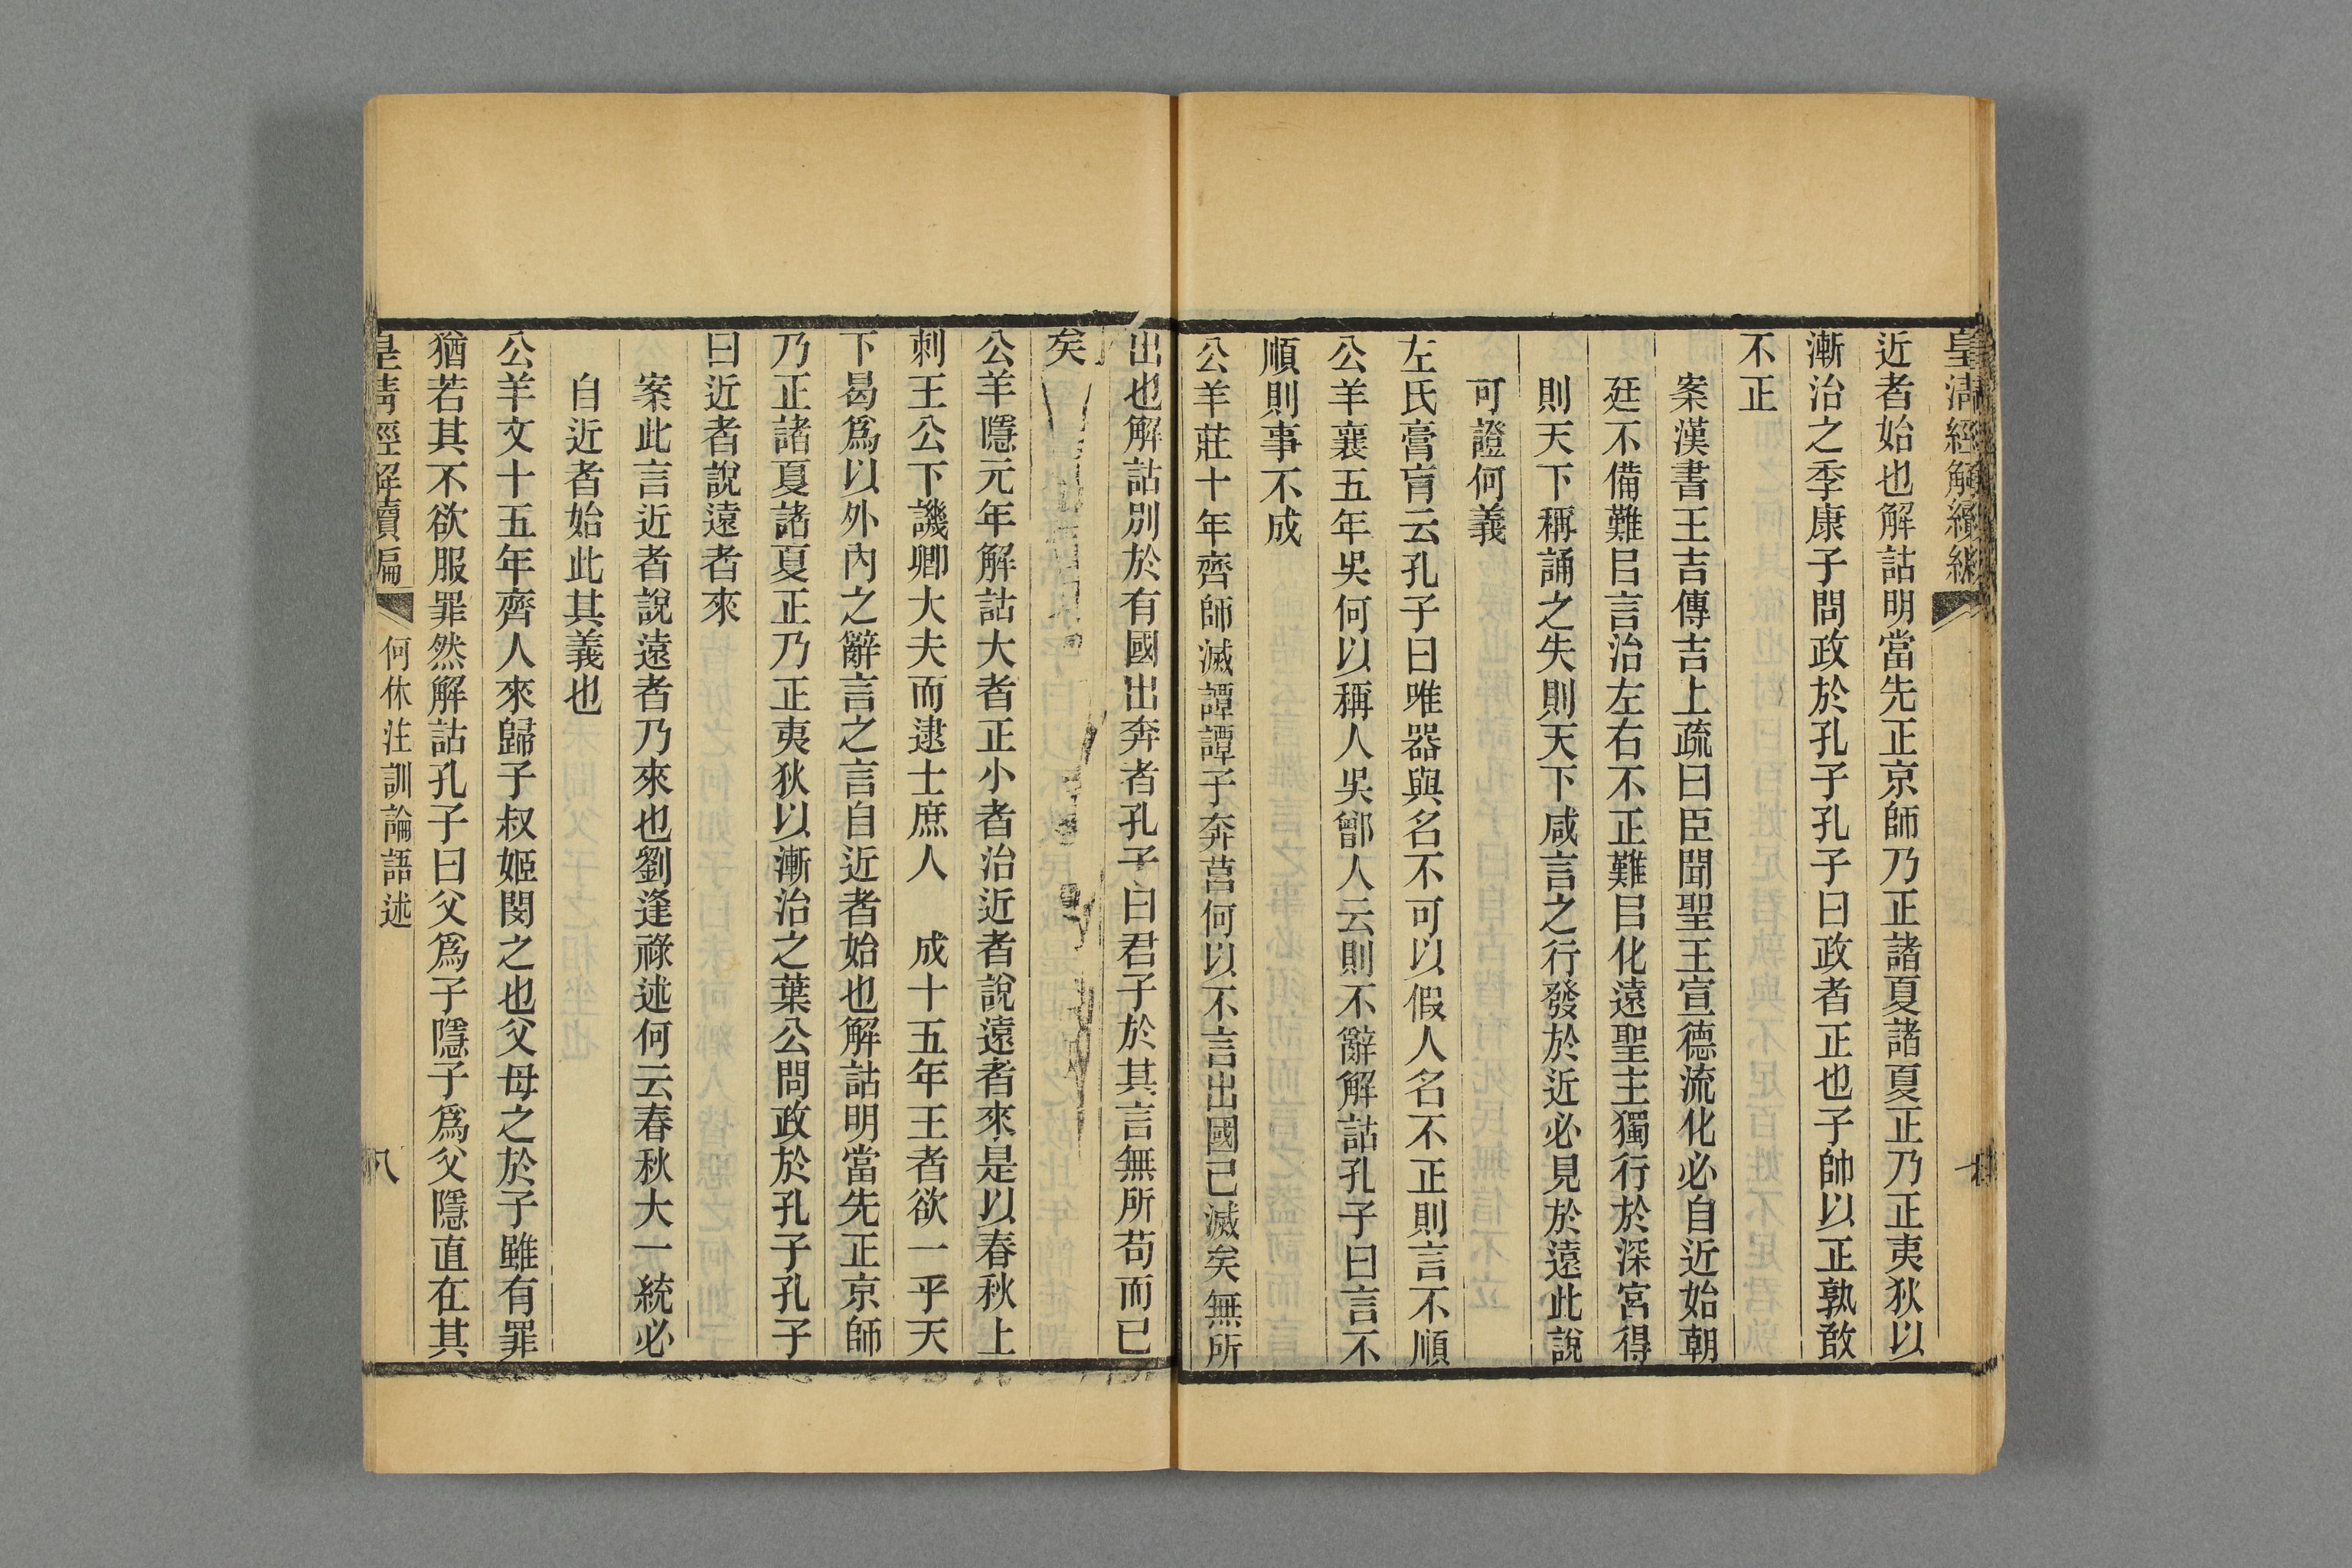 皇清經解續編
近者始也解詁明當先正京師乃正諸夏諸夏正乃正夷狄以
漸治之季康子問政於孔子孔子曰政者正也子帥以正孰敢
不正
案漢書王吉傳吉上疏曰臣聞聖王宣德流化必自近始朝
廷不備難㠯言治左右不正難㠯化遠聖主獨行於深宮得
則天下稱誦之失則天下咸言之行發於近必見於遠此說
可證何義
左氏膏肓云孔子曰唯器與名不可以假人名不正則言不順
公羊襄五年吳何以稱人吳鄫人云則不辭解詁孔子曰言不
順則事不成
公羊莊十年齊師滅譚譚子奔莒何以不言出國已滅矣無所
出也解詁別於有國出奔者孔子曰君子於其言無所苟而已
矣
公羊隱元年解詁大者正小者治近者說遠者來是以春秋上
刺王公下譏卿大夫而逮士庶人　成十五年王者欲一乎天
下曷爲以外內之辭言之言自近者始也解詁明當先正京師
乃正諸夏諸夏正乃正夷狄以漸治之葉公問政於孔子孔子
曰近者說遠者來
案此言近者說遠者乃來也劉逢祿述何云春秋大一統必
自近者始此其義也
公羊文十五年齊人來歸子叔姬閔之也父母之於子雖有罪
猶若其不欲服罪然解詁孔子曰父爲子隱子爲父隱直在其
皇清經解續編　何休注訓論語述　八